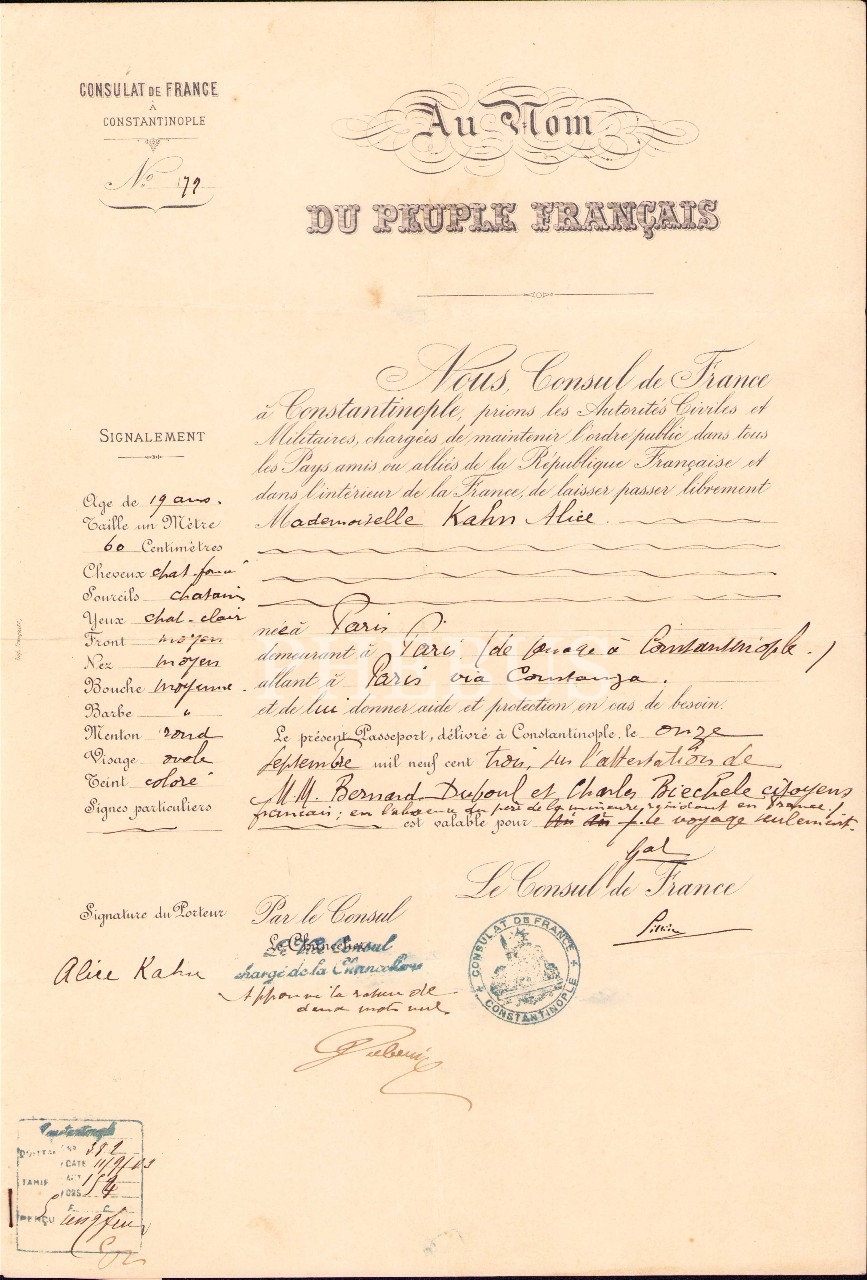 CONSULAT DE FRANCE
À
CONSTANTINOPLE
No 172
Au Nom
DU PEUPLE FRANÇAIS
Nous, Consul de France
à Constantinople, prions les Autorités Civiles et
Militaires, chargées de maintenir l'ordre public dans tous
les Pays amis ou alliés de la République Française et
dans l'intérieur de la France, de laisser passer librement
Mademoiselle Kahn Alice
née à Paris
demeurant à Paris (de passage à Constantinople.)
allant à Paris via Constanza.
et de lui donner aide et protection en cas de besoin.
Le présent Passeport, délivré à Constantinople, le onze
septembre mil neuf cent trois, sur l'attestation de
MM. Bernard Dupoul et Charles Biechele citoyens
français; en l'absence du père de la mineure, résidant en France.)
est valable pour le voyage seulement.
SIGNALEMENT
Age de 19 ans.
Taille un Mètre
60 Centimètres
Cheveux chat. foncé
Sourcils chatain
Yeux chat-clair
Front moyen
Nez moyen
Bouche moyenne.
Barbe "
Menton rond
Visage ovale
Teint coloré
Signes particuliers
Signature du Porteur
Alice Kahn
Par le Consul
Le Chancelier
Le Vice Consul
chargé de la Chancellerie
Approuvé la rature de
deux mots nuls
Le Consul de France
CONSULAT DE FRANCE
CONSTANTINOPLE
Constantinople
No 382
DATE 11/9/03
TARIF ART 154
PERÇU